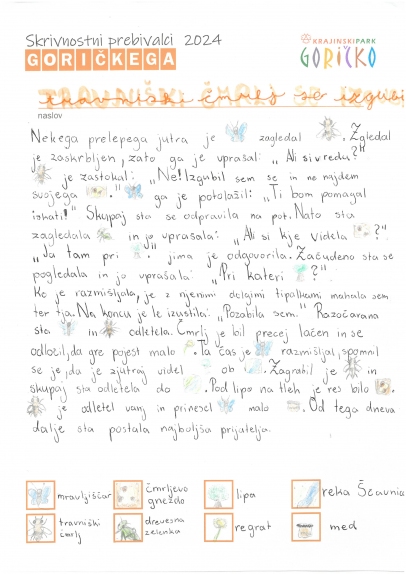 Skrivnostni prebivalci 2024
GORIČKEGA
KRAJINSKI PARK
GORIČKO
TRAVNIŠKI ČMRLJ SE IZGUBI
naslov
Nekega prelepega jutra je zagledal . Zgledal
je zaskrbljen, zato ga je vprašal: "Ali si v redu?"
je zastokal: "Ne! Izgubil sem se in ne najdem
svojega ." ga je potolažil: "Ti bom pomagal
iskati!" Skupaj sta se odpravila na pot. Nato sta
zagledala in jo vprašala: "Ali si kje videla ?"
"Ja tam pri " jima je odgovorila. Začudeno sta se
pogledala in jo vprašala: "Pri kateri ?"
Ko je razmišljala, je z njenimi dolgimi tipalkami mahala sem
ter tja. Na koncu je le izustila: "Pozabila sem." Razočarana
sta in odletela. Čmrlj je bil precej lačen in se
odločil, da gre pojest malo . Ta čas je razmišljal, spomnil
se je, da je zjutraj videl ob . Zagrabil je in
skupaj sta odletela do . Pod lipo na tleh je res bilo .
je odletel vanj in prinesel malo . Od tega dneva
dalje sta postala najboljša prijatelja.
mravljiščar
čmrljevo
gnezdo
lipa
reka Ščavnica
travniški
čmrlj
drevesna
zelenka
regrat
med